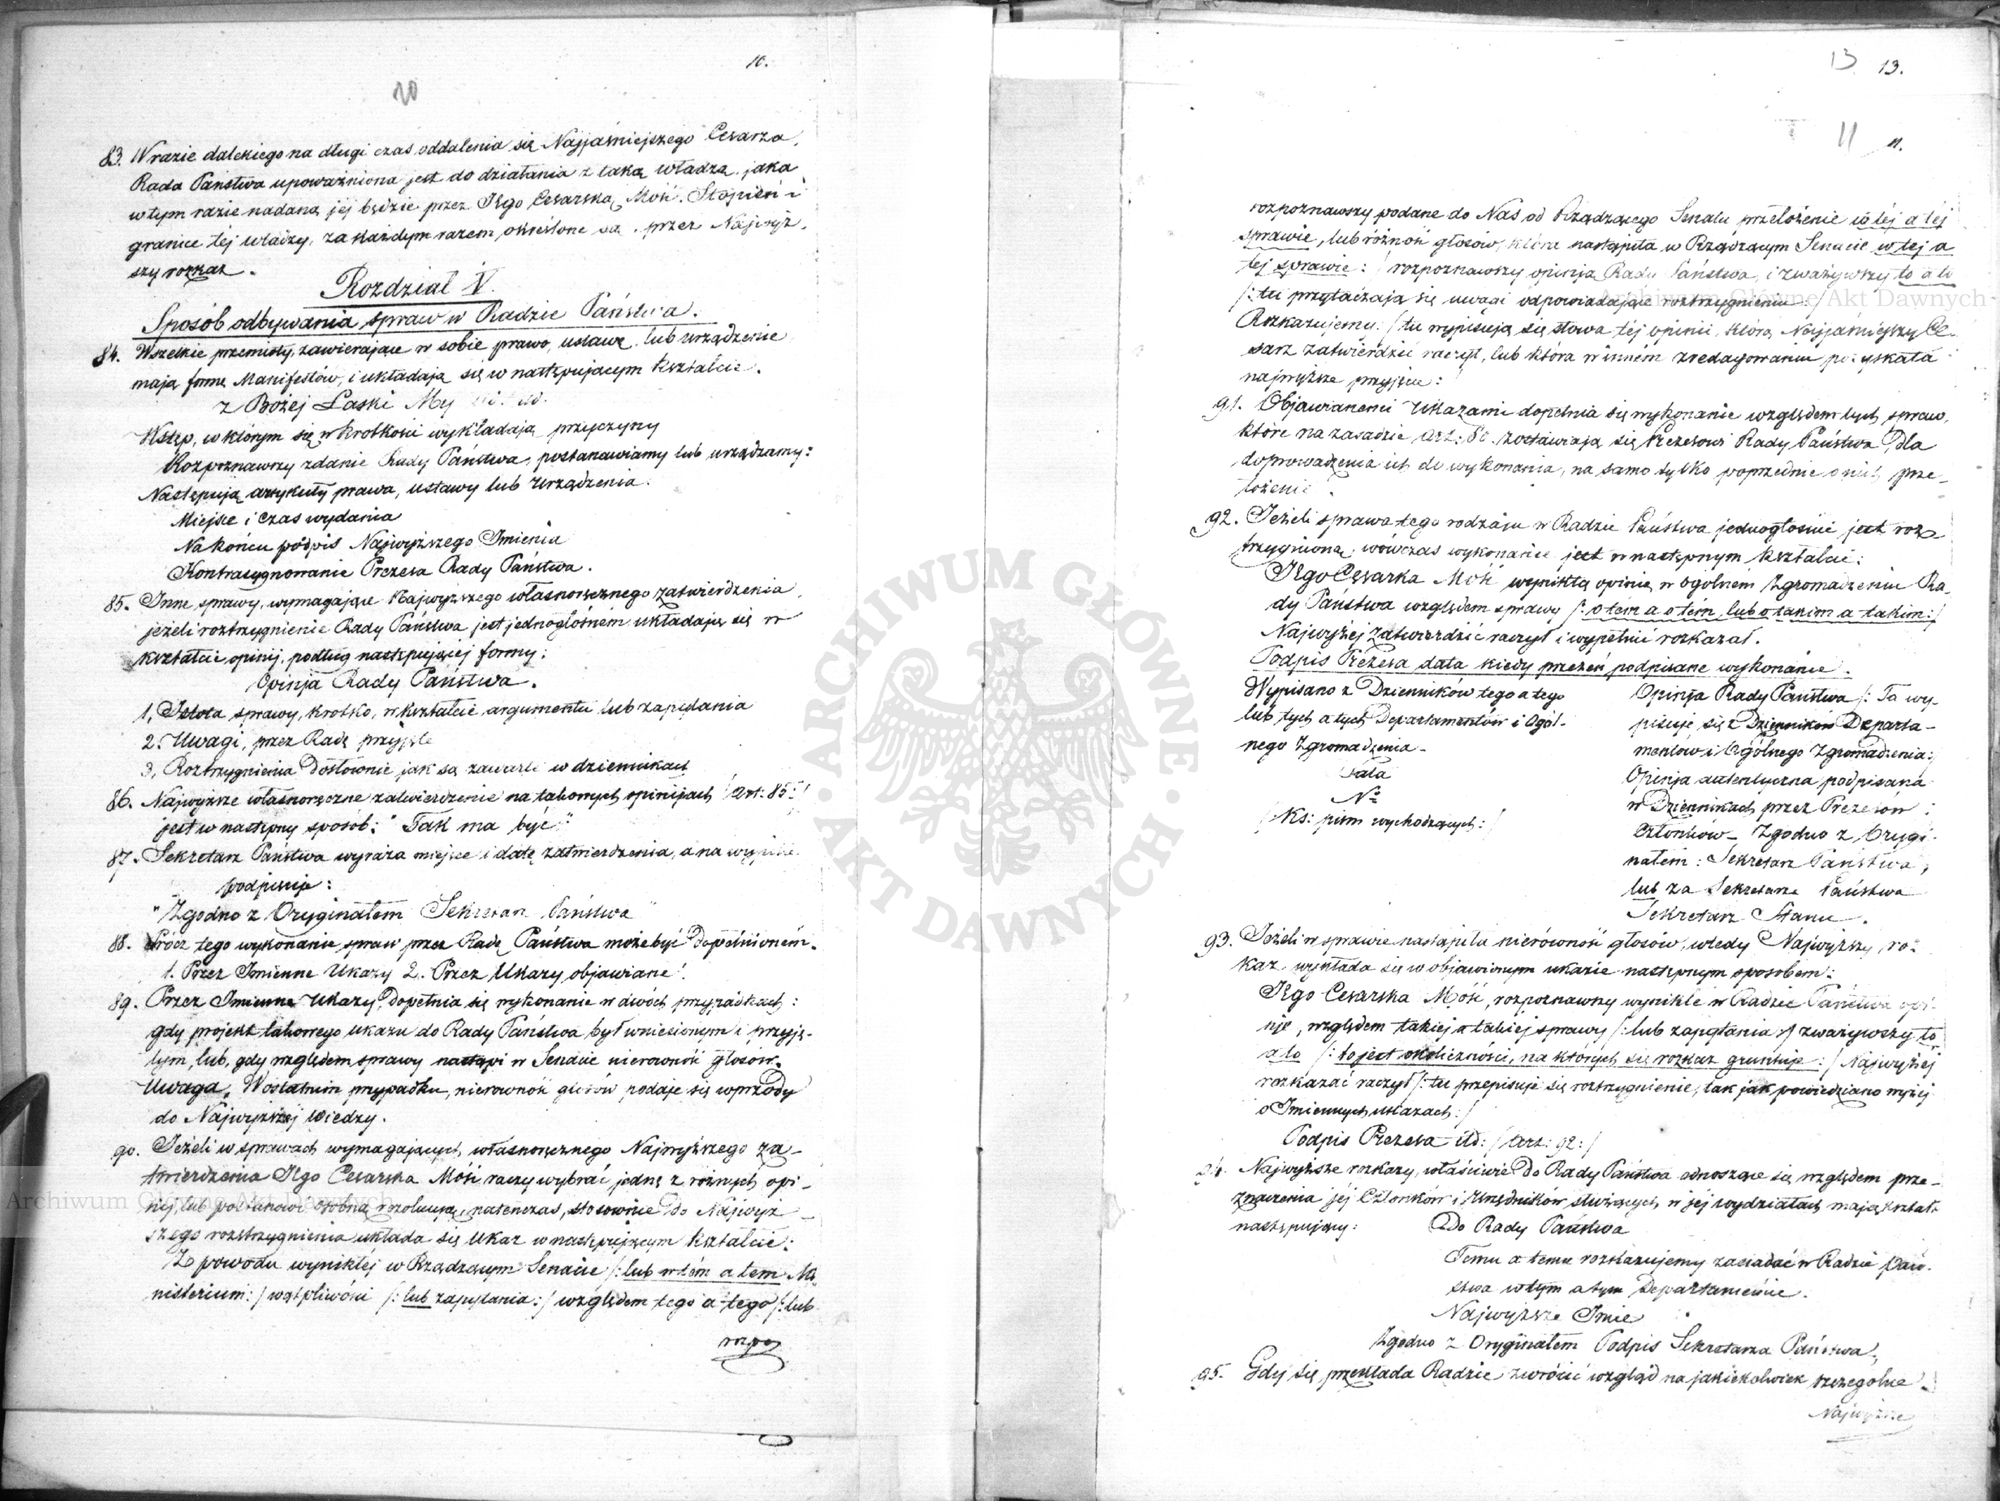 10.
10
83. W razie dalekiego na długi czas oddalenia się Najjaśniejszego Cesarza,
Rada Państwa upoważniona jest do działania z taką władzą, jaka
w tym razie nadaną jej będzie przez Jego Cesarską Mość. Stopień i
granice tej władzy, za każdym razem, określone są, przez Najwyż-
szy rozkaz.
Rozdział V.
Sposób odbywania spraw w Radzie Państwa.
84. Wszelkie przemioty, zawierające w sobie prawo, ustawę, lub urządzenie
mają formę Manifestów, i układają się w następującym kształcie.
z Bożej Łaski My
Wstęp, w którym się w krótkości wykładają przyczyny
Rozpoznawszy zdanie Rady Państwa, postanawiamy lub urządzamy:
Następują artykuły prawa, ustawy lub urządzenia.
Miejsce i czas wydania
Na końcu podpis Najwyższego Imienia
Kontrasygnowanie Prezesa Rady Państwa.
85. Inne sprawy, wymagające Najwyższego własnoręcznego zatwierdzenia,
jeżeli roztrzygnienie Rady Państwa jest jednogłośném układają się w
kształcie opinij, podług następującej formy:
Opinja Rady Państwa.
1, Istota sprawy, krótko, w kształcie argumentu lub zapytania
2. Uwagi, przez Radę przyjęte
3, Roztrzygnienia dosłownie jak są zawarte w dziennikach
86. Najwyższe własnoręczne zatwierdzenie na takowych opinijach /art: 85:/
jest w następny sposób: "Tak ma być"
87. Sekretarz Państwa wyraża miejsce i datę zatwierdzenia, a na wypisie
podpisuje:
"Zgodno z Oryginałem Sekretarz Państwa"
88. Prócz tego wykonanie spraw przez Radę Państwa może być dopełnioném.
1. Przez Imienne Ukazy 2. Przez Ukazy objawiane.
89. Przez Imienne Ukazy, dopełnia się wykonanie w dwóch przypadkach:
gdy projekt takowego ukazu do Rady Państwa był wniesionym i przyję-
tym, lub, gdy względem sprawy nastąpi w Senacie nierówność głosów.
Uwaga. W ostatnim przypadku, nierówność głosów podaje się wprzódy
do Najwyższej wiedzy.
90. Jeżeli w sprawach wymagających własnoręcznego Najwyższego za-
twierdzenia Jego Cesarska Mość raczy wybrać jedną z różnych opi-
nij, lub postanowi osobną rezolucją, natenczas, stosownie do Najwyż-
szego rozstrzygnienia układa się Ukaz w następującym kształcie:
Z powodu wynikłej w Rządzącym Senacie /:lub w tém a tem Mi-
nisterium:/ wątpliwości /:lub zapytania:/ względem tego a tego /:lub
rozpo
13 13.
11 11.
rozpoznawszy podane do Nas od Rządzącego Senatu przełożenie w tej a tej
sprawie, lub różność głosów, która nastąpiła w Rządzącym Senacie w tej a
tej sprawie:/ rozpoznawszy opinją Rady Państwa, i zważywszy to a to
/:tu przytaczają się uwagi odpowiadające roztrzygnieniu:/
Rozkazujemy: /:tu wypisują się słowa tej opinii, którą Najjaśniejszy Ce-
sarz zatwierdzić raczył, lub która w inném zredagowaniu pozyskała
najwyższe przyjęcie:
91. Objawianemi Ukazami dopełnia się wykonanie względem tych spraw,
które na zasadzie art: zostawiają się Prezesowi Rady Państwa, dla
doprowadzenia ich do wykonania, na samo tylko poprzednie o nich prze-
łożenie.
92. Jeżeli sprawa tego rodzaju w Radzie Państwa jednogłośnie jest roz-
trzygnioną, wówczas wykonanie jest w następnym kształcie:
Jego Cesarska Mość wynikłą opinią w ogólnem Zgromadzeniu Ra-
dy Państwa względem sprawy /:o tem a o tem, lub o takim a takim:/
Najwyżej zatwierdzić raczył i wypełnić rozkazał.
Podpis Prezesa data kiedy przezeń podpisane wykonanie.
Wypisano z Dzienników tego a tego
lub tych a tych Departamentów i Ogól-
nego Zgromadzenia.
Data
No
/Ks: pism wychodzących:/
Opinja Rady Państwa /:Ta wy-
pisuje się z Dzienników Departa-
mentów i Ogólnego Zgromadzenia:/
Opinja autentyczna podpisana
w Dziennikach przez Prezesów i
Członków. Zgodno z Orygi-
nałem: Sekretarz Państwa,
lub za Sekretarza Państwa
Sekretarz Stanu.
93. Jeżeli w sprawie nastąpiła nierówność głosów, wtedy Najwyższy roz-
kaz wykłada się w objawionym ukazie następnym sposobem:
Jego Cesarska Mość, rozpoznawszy wynikłe w Radzie Państwa opi-
nje, względem takiej a takiej sprawy /:lub zapytania:/ zważywszy to
a to /:to jest okoliczności, na których się rozkaz gruntuje:/ Najwyżej
rozkazać raczył /:tu przepisuje się roztrzygnienie, tak jak powiedziano wyżej
o Imiennych ukazach:/
Podpis Prezesa itd: /art: 92:/
94. Najwyższe rozkazy, właściwie do Rady Państwa odnoszące się względem prze-
znaczenia jej Członków i Urzędników służących w jej wydziałach mają kształt
następujący:
Do Rady Państwa
Temu a temu rozkazujemy zasiadać w Radzie Pań-
stwa w tym a tym Departamencie.
Najwyższe Imie
Zgodno z Oryginałem Podpis Sekretarza Państwa,
95. Gdy się przekłada Radzie zwrócić wzgląd na jakiekolwiek szczególne
Najwyższe
ARCHIWUM GŁÓWNE AKT DAWNYCH
Archiwum Główne Akt Dawnych
Archiwum Główne Akt Dawnych